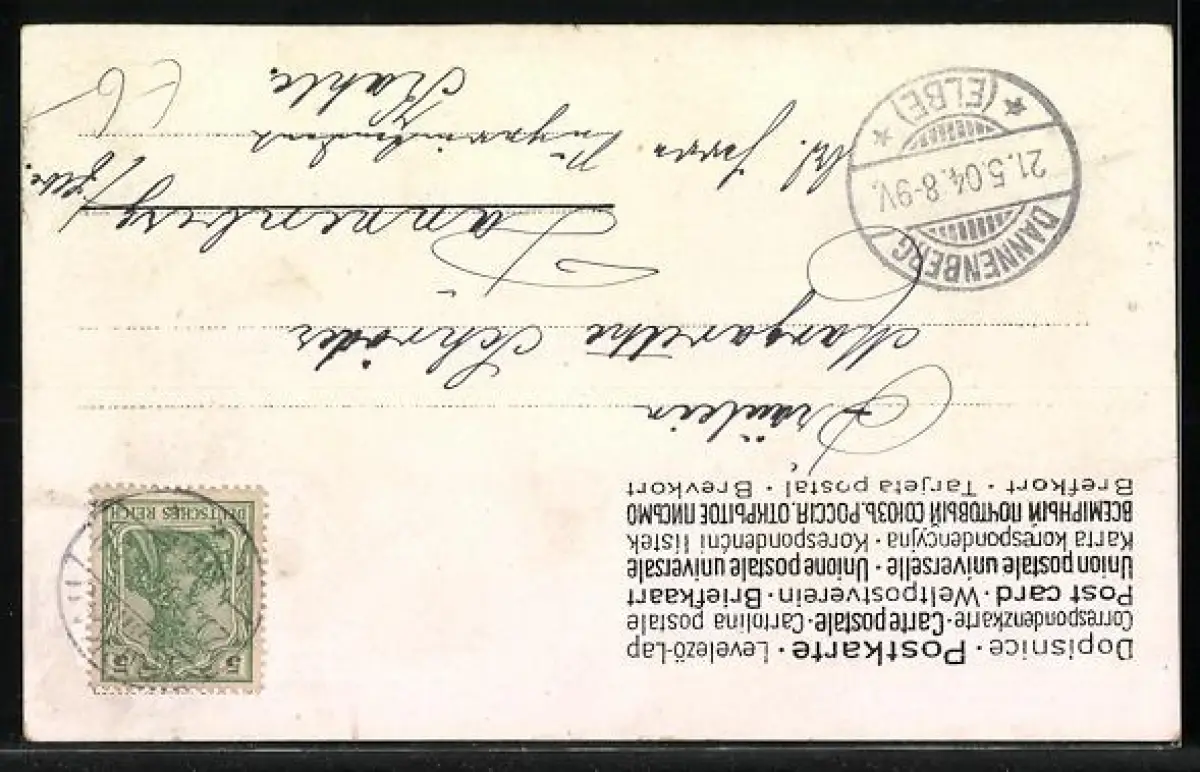 Dopisnice · Postkarte · Levelező-Lap
Correspondenzkarte · Carte postale · Cartolina postale
Post card · Weltpostverein · Briefkaart
Union postale universelle · Unione postale universale
Karta korespondencyjna · Korespondenční lístek
ВСЕМІРНЫЙ ПОЧТОВЫЙ СОЮЗЪ. РОССІЯ. ОТКРЫТОЕ ПИСЬМО
Brefkort · Tarjeta postal · Brevkort
DEUTSCHES REICH
5 5
Fräulein
Margarethe Schröder
Dannenberg
/Elbe.
Herrn
Kahle.
DANNENBERG
21.5.04.8-9V.
* (ELBE) *